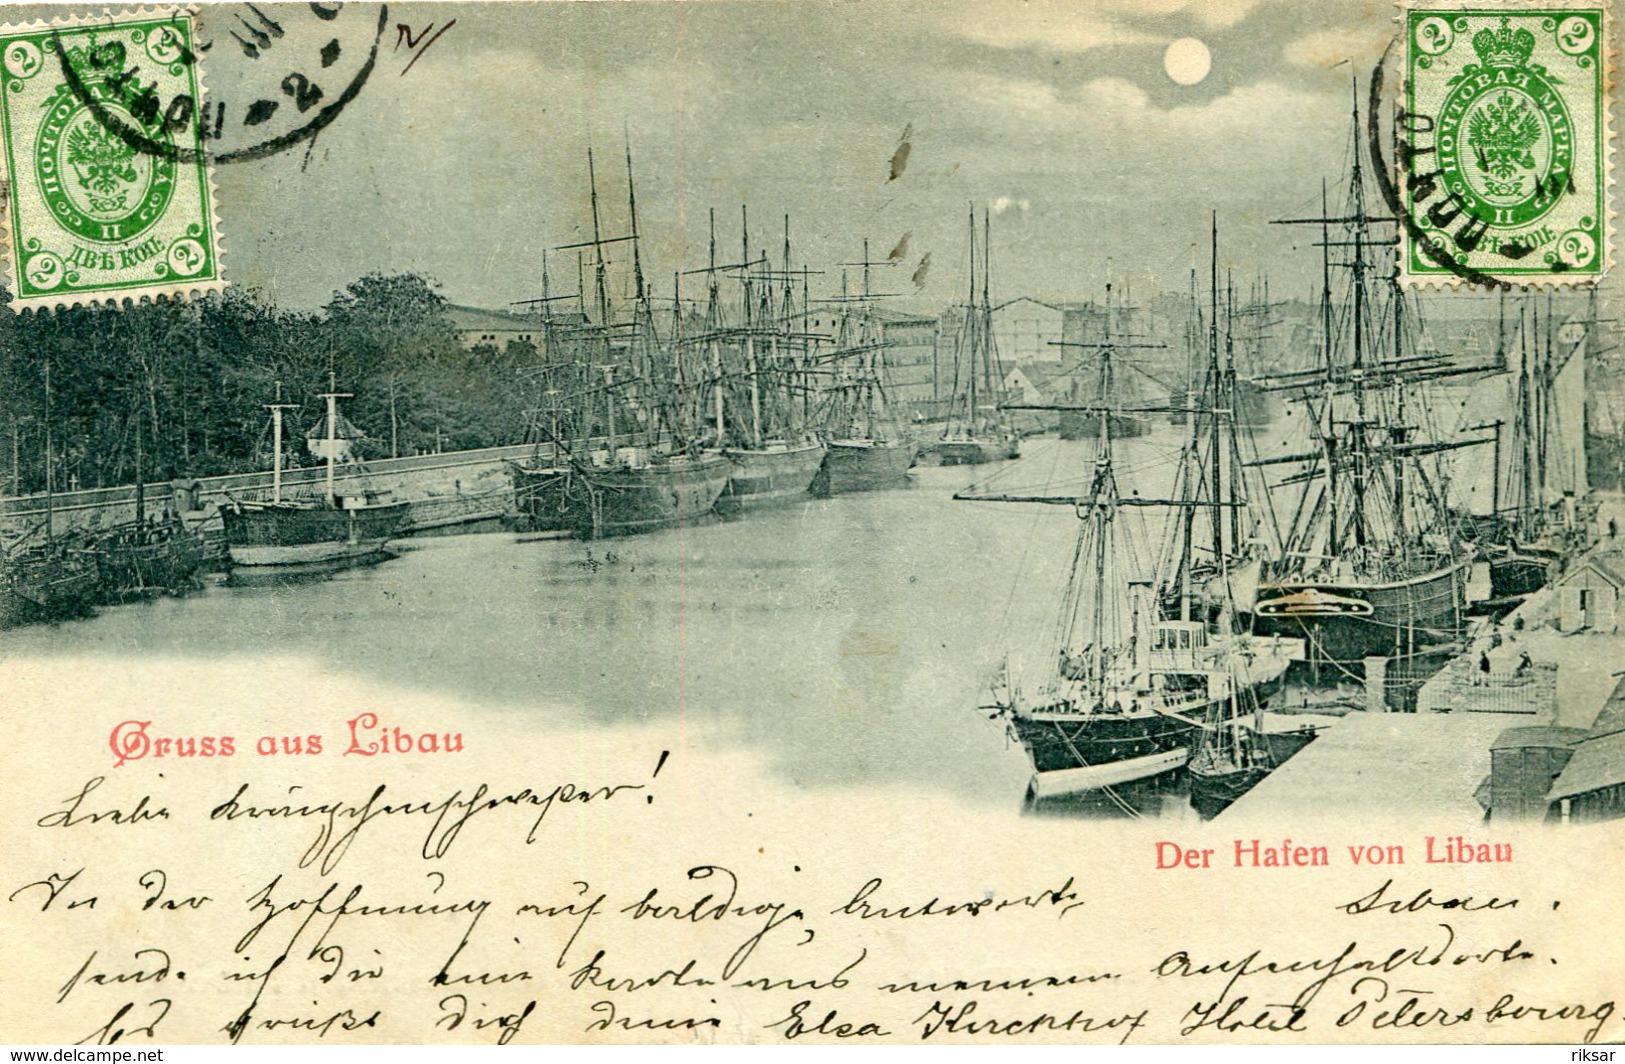 2 2
ПОЧТОВАЯ МАРКА
II
ДВѢ КОП.
2 2
2 2
ПОЧТОВАЯ МАРКА
II
ДВѢ КОП.
2 2
Gruss aus Libau
Der Hafen von Libau
Liebe Kränzchenschwester!
In der Hoffnung auf baldige Antwort
Libau.
sende ich dir eine Karte aus meinem Aufenthaltsorte.
Es grüßt Dich deine Elsa Kirchhof Hotel Petersbourg.
delcampe.net
riksar